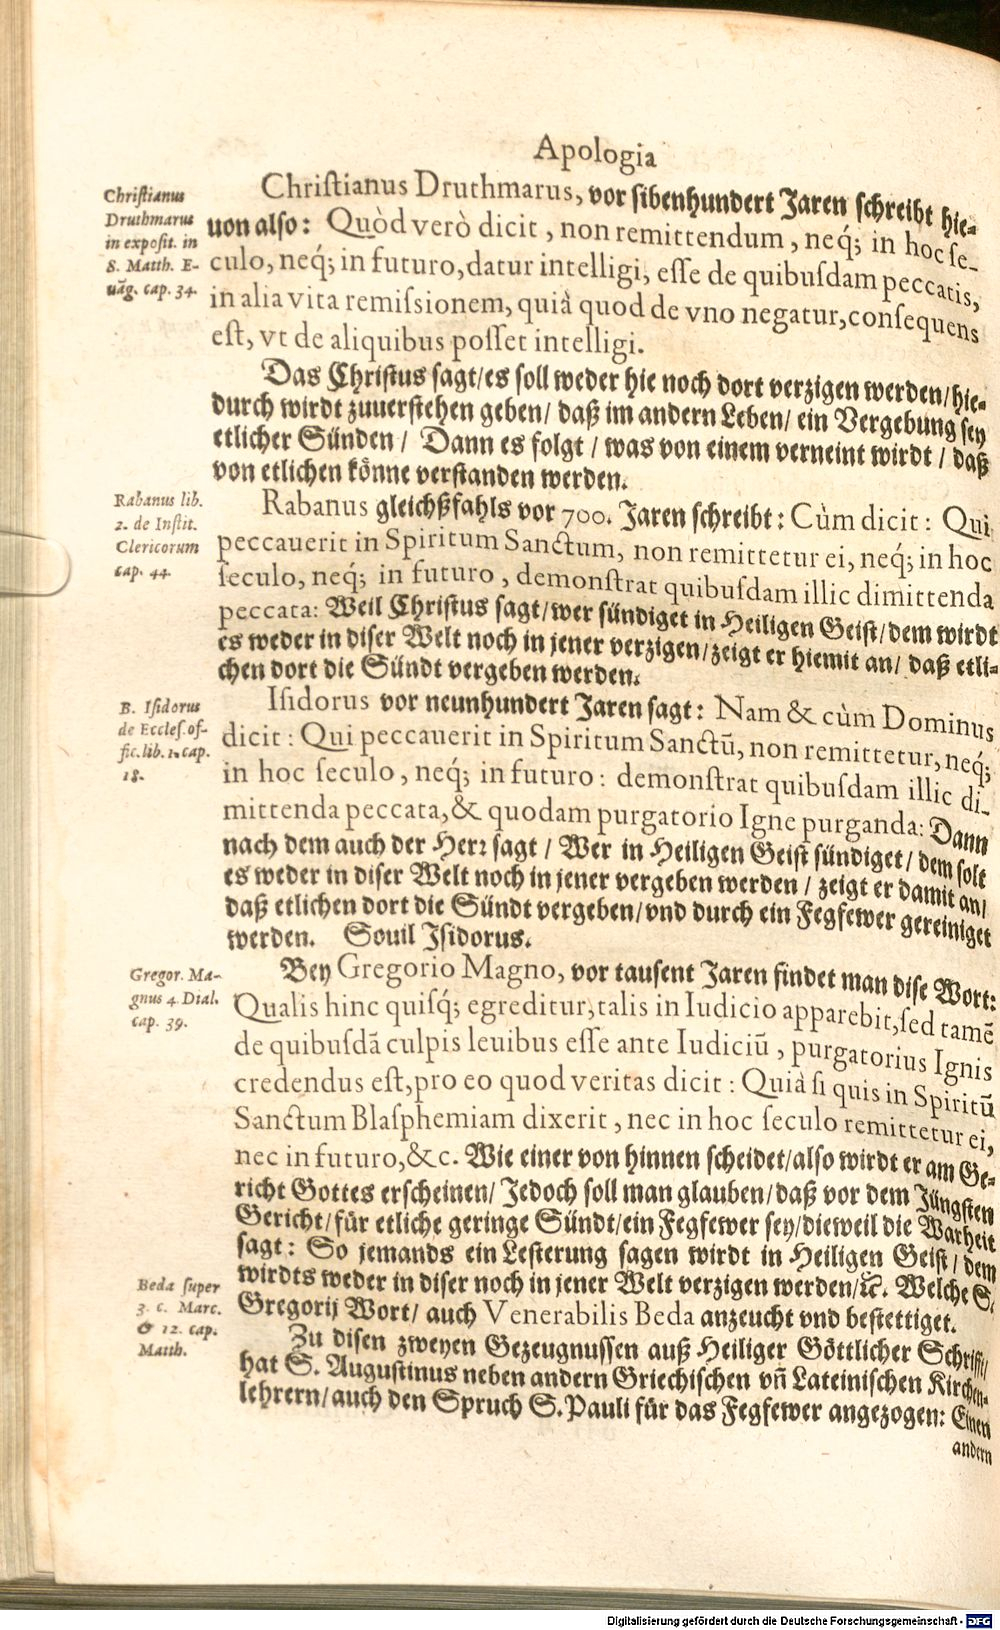 Apologia
Christianus
Druthmarus
in exposit. in
S. Matth. E-
uāg. cap. 34.
Christianus Druthmarus, vor sibenhundert Jaren schreibt hie-
uon also: Quòd verò dicit, non remittendum, neq́; in hoc se-
culo, neq́; in futuro, datur intelligi, esse de quibusdam peccatis,
in alia vita remissionem, quià quod de vno negatur, consequens
est, vt de aliquibus posset intelligi.
Das Christus sagt/ es soll weder hie noch dort verzigen werden/ hie-
durch wirdt zuuerstehen geben/ daß im andern Leben/ ein Vergebung sey
etlicher Sünden/ Dann es folgt/ was von einem verneint wirdt/ daß
von etlichen könne verstanden werden.
Rabanus lib.
2. de Instit.
Clericorum
cap. 44.
Rabanus gleichßfahls vor 700. Jaren schreibt: Cùm dicit: Qui
peccauerit in Spiritum Sanctum, non remittetur ei, neq́; in hoc
seculo, neq́; in futuro, demonstrat quibusdam illic dimittenda
peccata: Weil Christus sagt/ wer sündiget in Heiligen Geist/ dem wirdt
es weder in diser Welt noch in jener verzigen/ zeigt er hiemit an/ daß etli-
chen dort die Sündt vergeben werden.
B. Isidorus
de Eccles. of-
fic. lib. 1. cap.
18.
Isidorus vor neunhundert Jaren sagt: Nam & cùm Dominus
dicit: Qui peccauerit in Spiritum Sanctū, non remittetur, neq́;
in hoc seculo, neq́; in futuro: demonstrat quibusdam illic di-
mittenda peccata, & quodam purgatorio Igne purganda: Dann
nach dem auch der Herr sagt/ Wer in Heiligen Geist sündiget/ dem solt
es weder in diser Welt noch in jener vergeben werden/ zeigt er damit an/
daß etlichen dort die Sündt vergeben/ vnd durch ein Fegfewer gereiniget
werden. Souil Isidorus.
Gregor. Ma-
gnus 4. Dial.
cap. 39.
Bey Gregorio Magno, vor tausent Jaren findet man dise Wort:
Qualis hinc quisq́; egreditur, talis in Iudicio apparebit, sed tamē
de quibusdā culpis leuibus esse ante Iudiciū, purgatorius Ignis
credendus est, pro eo quod veritas dicit: Quià si quis in Spiritū
Sanctum Blasphemiam dixerit, nec in hoc seculo remittetur ei,
nec in futuro, &c. Wie einer von hinnen scheidet/ also wirdt er am Ge-
richt Gottes erscheinen/ Jedoch soll man glauben/ daß vor dem Jüngsten
Gericht/ für etliche geringe Sündt/ ein Fegfewer sey/ dieweil die Warheit
sagt: So jemands ein Lesterung sagen wirdt in Heiligen Geist/ dem
wirdts weder in diser noch in jener Welt verzigen werden/ ꝛc. Welche S.
Gregorij Wort/ auch Venerabilis Beda anzeucht vnd bestettiget.
Beda super
3. c. Marc.
& 12. cap.
Matth.
Zu disen zweyen Gezeugnussen auß Heiliger Göttlicher Schrifft/
hat S. Augustinus neben andern Griechischen vñ Lateinischen Kirchen-
lehrern/ auch den Spruch S. Pauli für das Fegfewer angezogen: Einen
andern
Digitalisierung gefördert durch die Deutsche Forschungsgemeinschaft - DFG